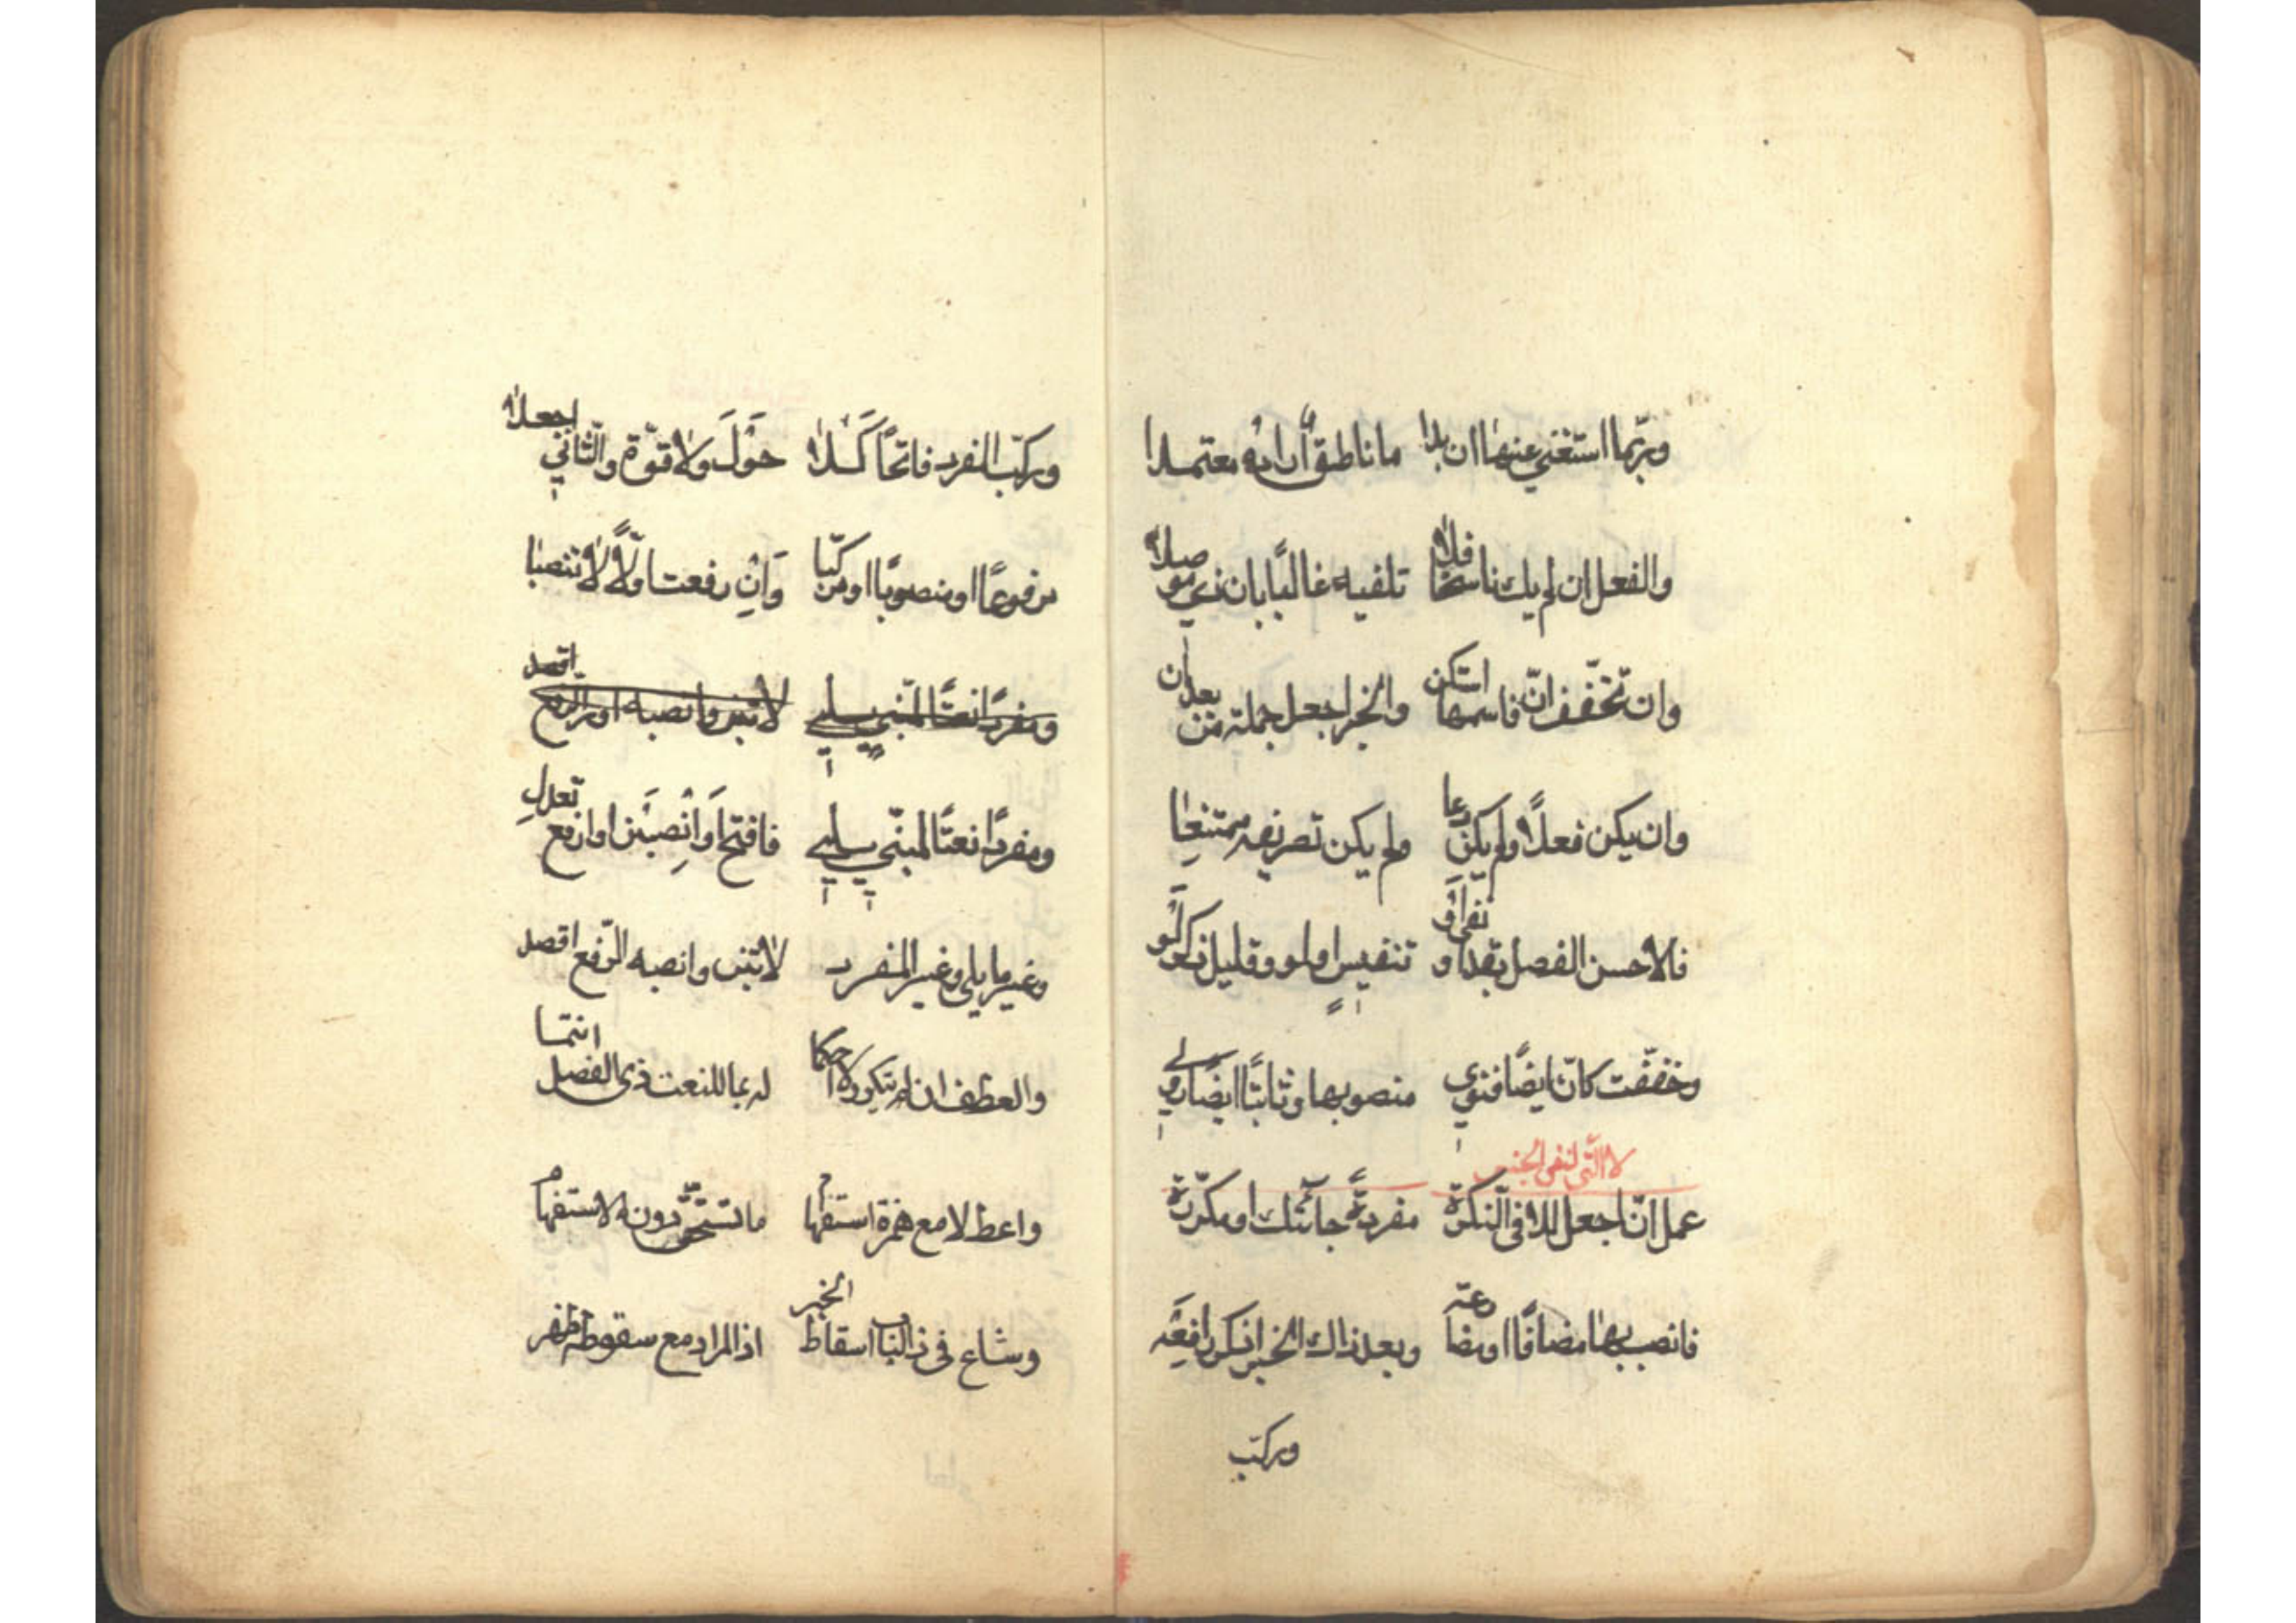 وربّما استغني عنها ان بدا ما ناطق أراده معتمدا
والفعل ان لم يك ناسخًا فلا تلفيه غالبًا بان ذي موصلا
وان تخفّف انّ فاسمها استكن والخبر اجعل جملة من بعد ان
وان يكن فعلًا ولم يكن دعا ولم يكن تصريفه ممتنعا
فالاحسن الفصل بقد او نفي أو تنفيس او لو وقليل ذكر لو
وخففت كانّ ايضًا فنوي منصوبها وثابتًا ايضًا روي
لا التّي لنفي الجنس
عمل انّ اجعل للا في النّكرة مفردةً جائتك او مكرّرة
فانصب بها مضافًا او مضارعة وبعد ذاك الخبر اذكر رافعه
وركّب
وركّب المفرد فاتحًا كَلا حَوْلَ ولا قوّة والثّاني اجعلا
مرفوعًا او منصوبًا او مركّبا وَانْ رفعت اوّلًا لا تنصبا
ومفردًا نعتًا لمبني يلي لا تبن وانصبه او الرفع اقصد
ومفردًا نعتًا لمبنّي يلي فافتح وَانْصِبَن او ارفع تعدلِ
وغير ما يلي وغير المفرد لا تبن وانصبه الرّفع اقصد
والعطف ان لم تتكرر لا احكما له بما للنعت ذي الفصل انتما
واعط لا مع همزة استفهام ما تستحقّ دون الاستفهام
وشاع في ذا الباب اسقاط الخبر اذا المراد مع سقوطه ظهر